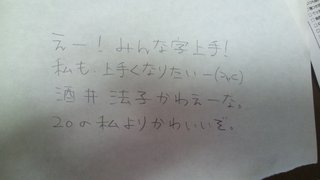 えー！みんな字上手！
私も上手くなりたいー(>_<)
酒井法子かわえーな。
20の私よりかわいいぞ。